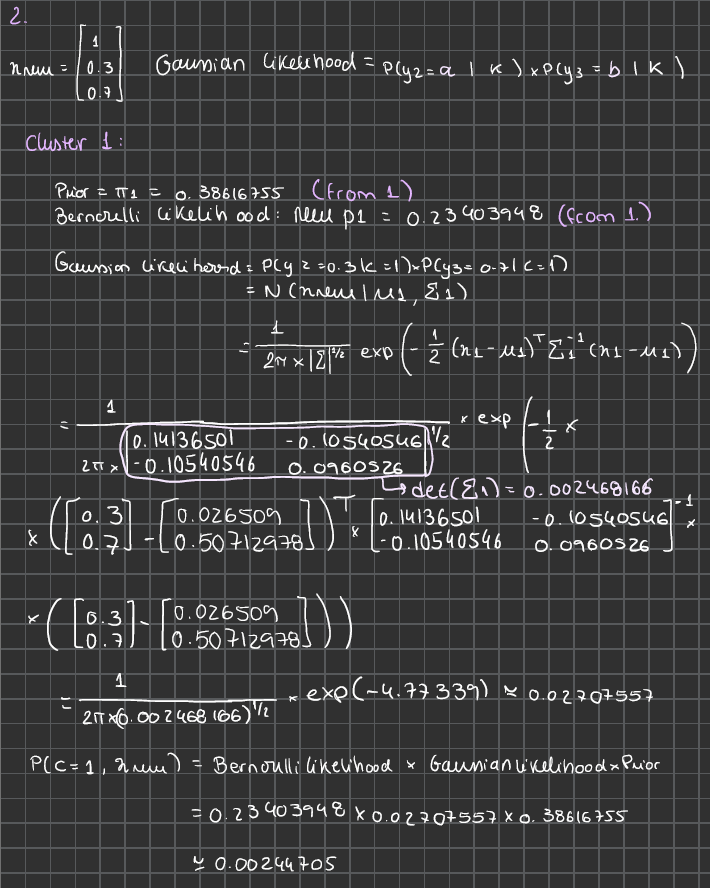 2.
xnew = [1 0.3 0.7] Gaussian Likelihood = P(y2 = a | K) × P(y3 = b | K)
Cluster 1:
Prior = π1 = 0.38616755 (from 1)
Bernoulli Likelihood: new p1 = 0.23403948 (from 1.)
Gaussian Likelihoord = P(y2 = 0.3 | c = 1) × P(y3 = 0.7 | c = 1)
= N(xnew | μ1, Σ1)
= 1 / (2π × |Σ|^1/2) exp(-1/2 (x1 - μ1)^T Σ1^-1 (x1 - μ1))
= 1 / (2π × [0.14136501 -0.10540546
-0.10540546 0.0960526]^1/2) × exp(-1/2 ×
→ det(Σ1) = 0.002468166
× ([0.3 0.7] - [0.026509 0.50712978])^T × [0.14136501 -0.10540546
-0.10540546 0.0960526]^-1 ×
× ([0.3 0.7] - [0.026509 0.50712978]))
= 1 / (2π × (0.002468166)^1/2) × exp(-4.77339) ≈ 0.02707557
P(C=1, xnew) = Bernoulli likelihood × Gaussian likelihood × Prior
= 0.23403948 × 0.02707557 × 0.38616755
≈ 0.00244705